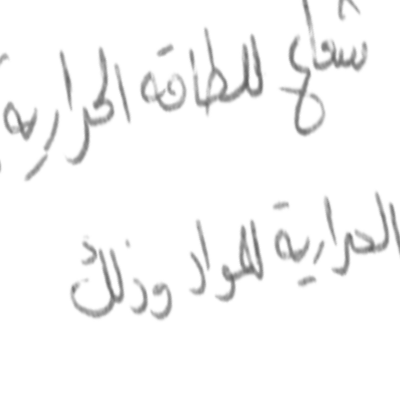 شعاع للطاقة الحرارية
الحرارية للمواد وذلك